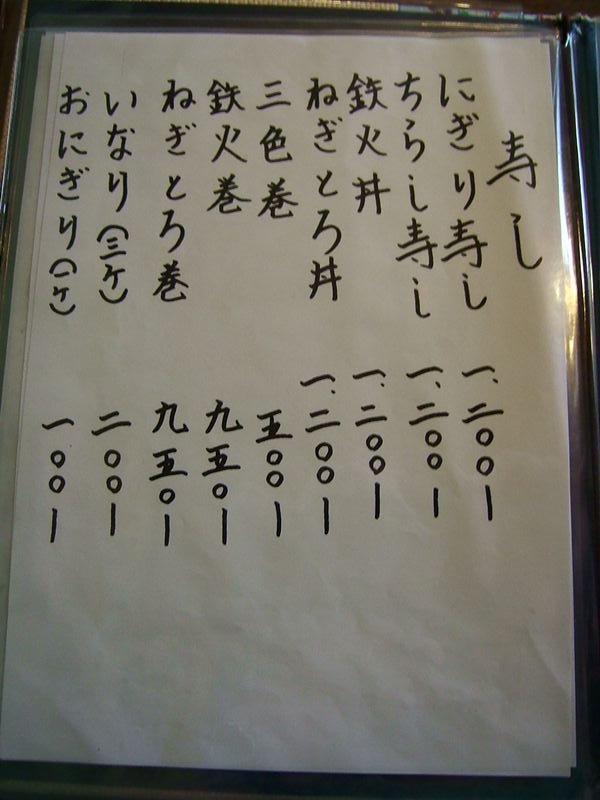 寿し
にぎり寿し 一、二〇〇ー
ちらし寿し 一、二〇〇ー
鉄火丼 一、二〇〇ー
ねぎとろ丼 一、二〇〇ー
三色巻 五〇〇ー
鉄火巻 九五〇ー
ねぎとろ巻 九五〇ー
いなり(三ケ) 二〇〇ー
おにぎり(一ケ) 一〇〇ー